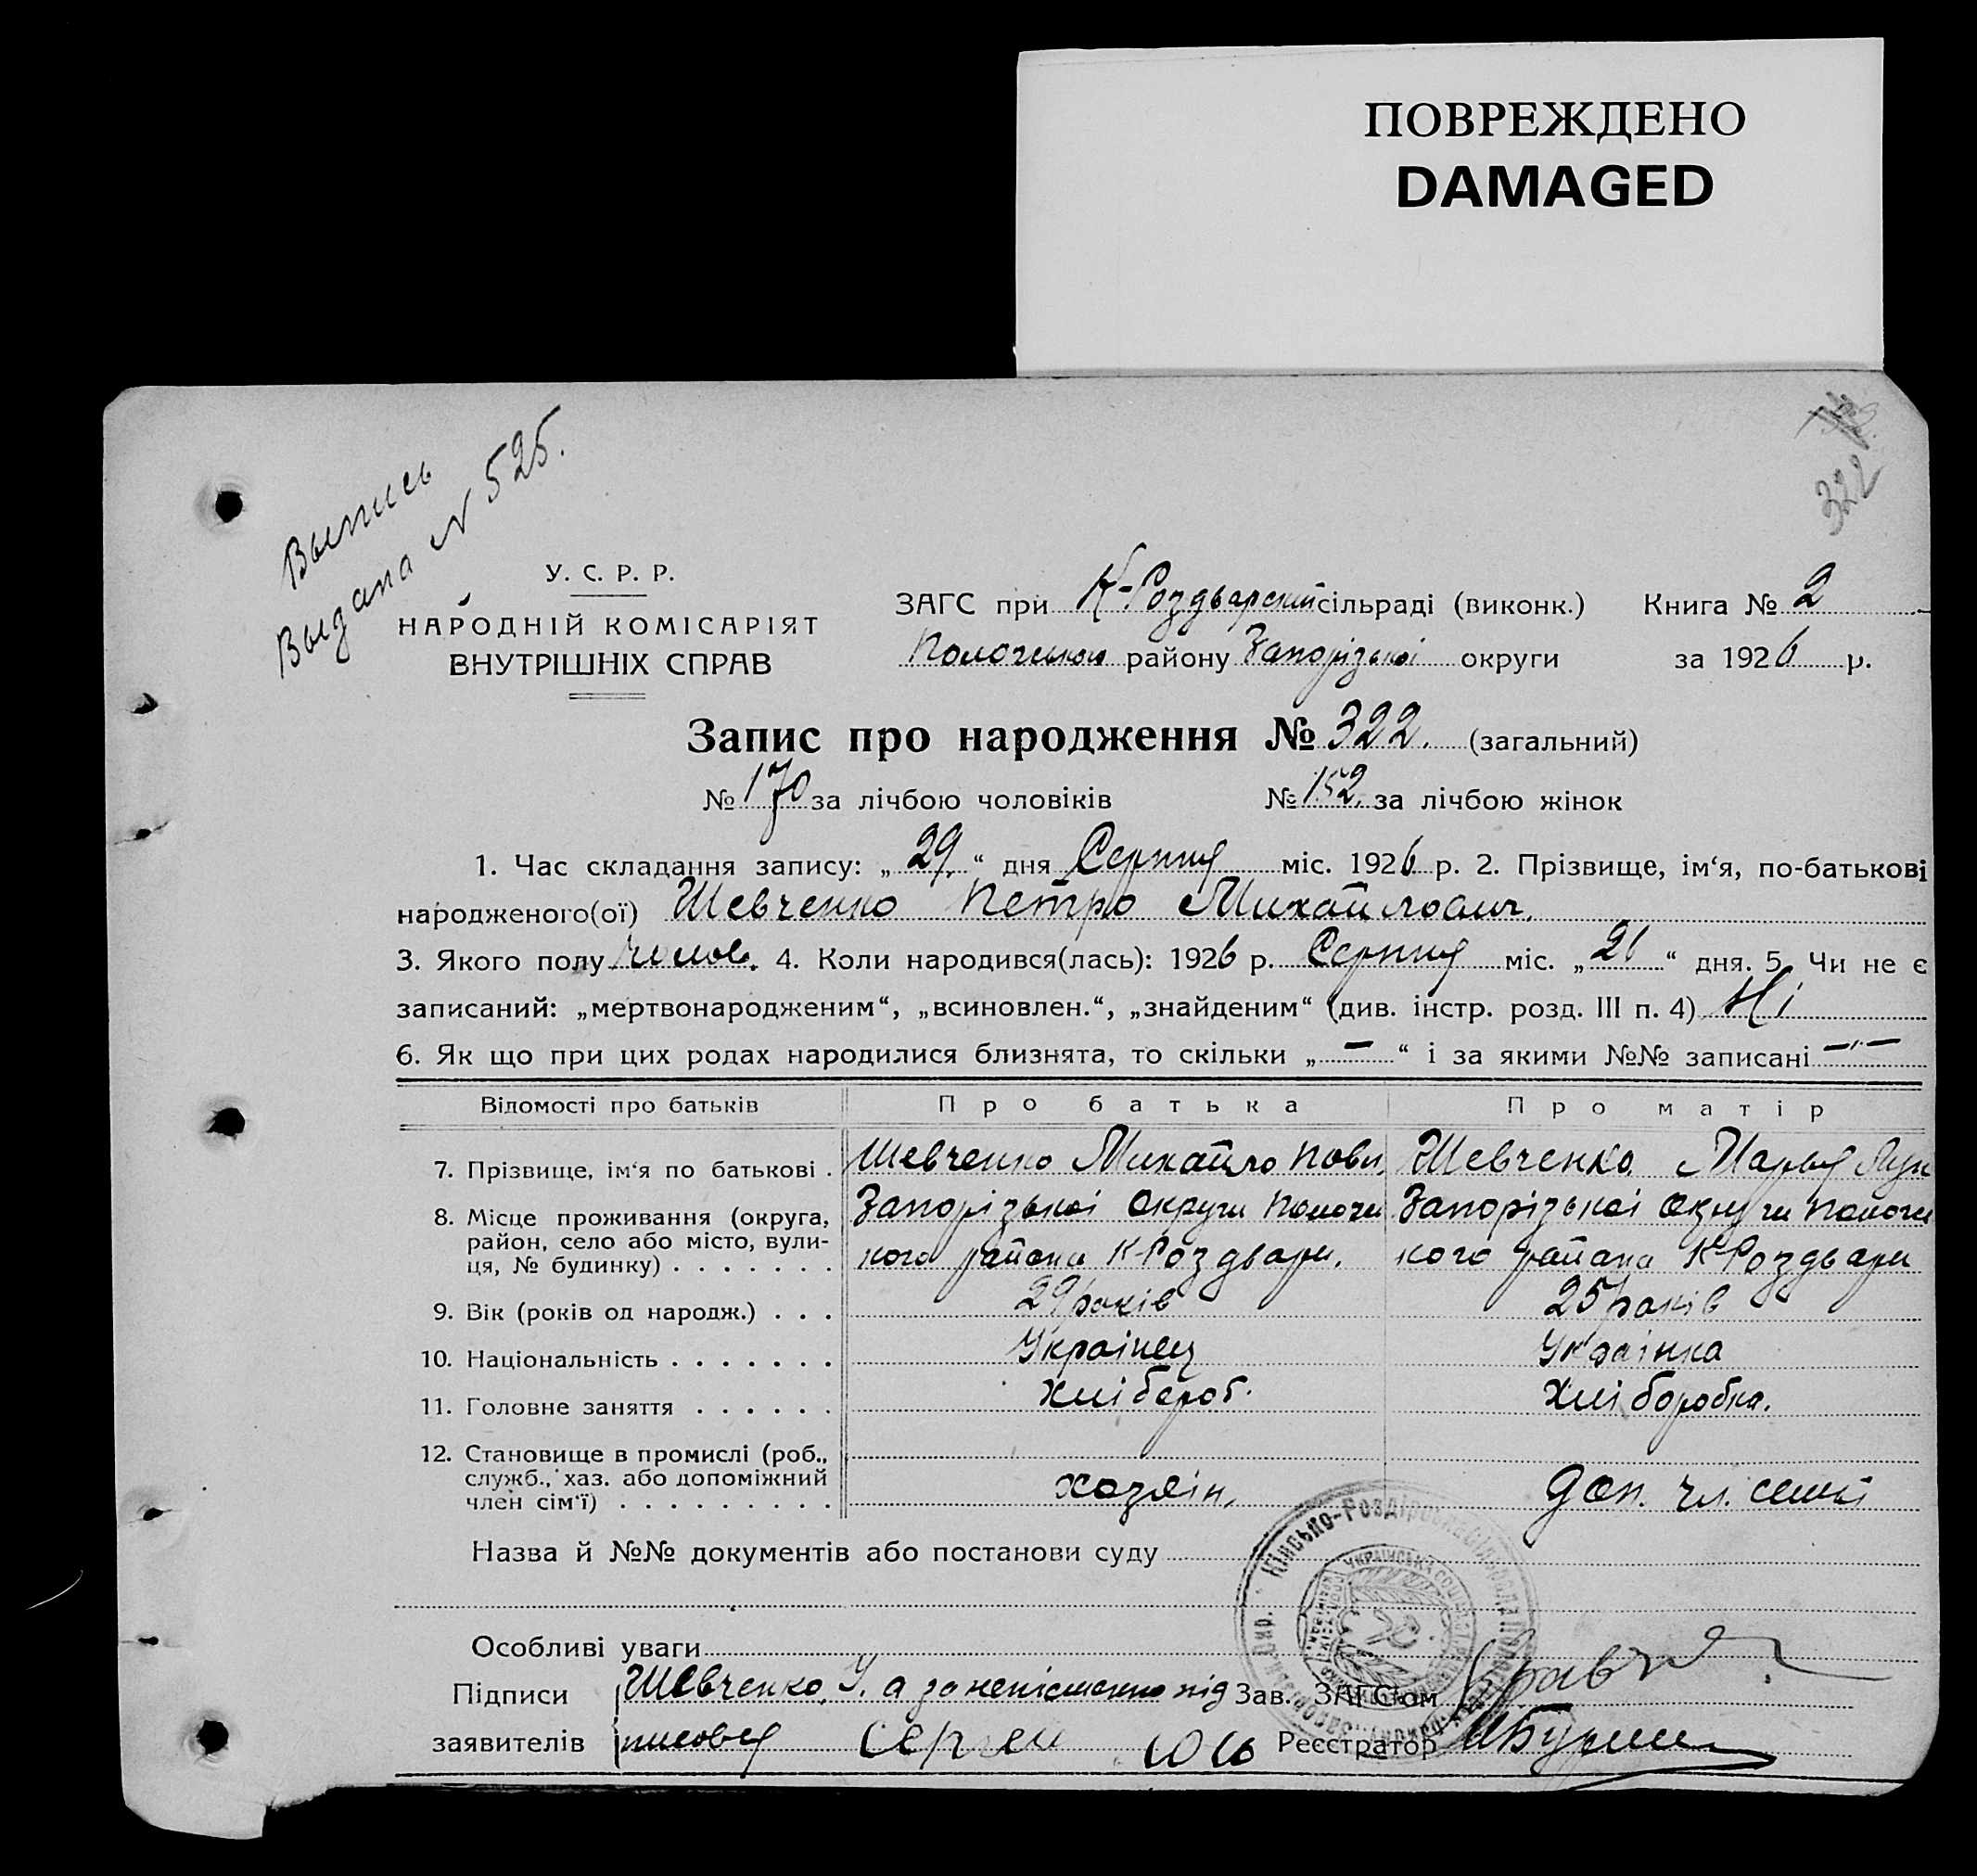 ПОВРЕЖДЕНО
DAMAGED
322
Выпись
Выдана N 525.
У. С. Р. Р.
НАРОДНІЙ КОМІСАРІЯТ
ВНУТРІШНІХ СПРАВ
ЗАГС при К-Роздварский сільраді (виконк.) Книга № 2
району Запорізької округи за 1926 р.
Запис про народження № 322. (загальний)
№ 170 за лічбою чоловіків № 152. за лічбою жінок
1. Час складання запису: „29.“ дня Серпня міс. 1926 р. 2. Прізвище, ім‘я, по-батькові
народженого(ої) Шевченко Петро Михайлович.
3. Якого полу чолов. 4. Коли народився(лась): 1926 р. Серпня міс. „26“ дня. 5. Чи не є
записаний: „мертвонародженим“, „всиновлен.“, „знайденим“ (див. інстр. розд. III п. 4) Ні
6. Як що при цих родах народилися близнята, то скільки „—“ і за якими №№ записані —"—
Відомості про батьків Про батька Про матір
7. Прізвище, ім‘я по батькові . Шевченко Михайло Павл. Шевченко Марья
8. Місце проживання (округа, район, село або місто, вулиця, № будинку) . . . . . . .
Запорізької округи Запорізької округи
кого района К-Роздвари. кого района К-Роздвари
9. Вік (років од народж.) . . . 29 років 25 років
10. Національність . . . . . . . Українец Українка
11. Головне заняття . . . . . . Хлібероб. Хліборобка.
12. Становище в промислі (роб., служб., хаз. або допоміжний член сім‘ї) . . . . . . . . .
хозяін. доп. чл. семії
Назва й №№ документів або постанови суду
Особливі уваги
Підписи Шевченко, У. а за непісьменно під Зав. ЗАГС‘ом
заявителів писовся Реєстратор